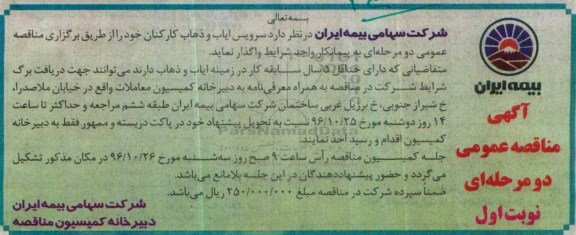 بسمه تعالی
شرکت سهامی بیمه ایران در نظر دارد سرویس ایاب و ذهاب کارکنان خود را از طریق برگزاری مناقصه
عمومی دو مرحله‌ای به پیمانکار واجد شرایط واگذار نماید.
متقاضیانی که دارای حداقل ۵ سال سابقه کار در زمینه ایاب و ذهاب دارند می‌توانند جهت دریافت برگ
شرایط شرکت در مناقصه به همراه معرفی‌نامه به دبیرخانه کمیسیون معاملات واقع در خیابان ملاصدرا،
خ شیراز جنوبی، خ برزیل غربی ساختمان شرکت سهامی بیمه ایران طبقه ششم مراجعه و حداکثر تا ساعت
۱۴ روز دوشنبه مورخ ۹۶/۱۰/۲۵ نسبت به تحویل پیشنهاد خود در پاکت دربسته و ممهور فقط به دبیرخانه
کمیسیون اقدام و رسید اخذ نمایند.
جلسه کمیسیون مناقصه رأس ساعت ۹ صبح روز سه‌شنبه مورخ ۹۶/۱۰/۲۶ در مکان مذکور تشکیل
می‌گردد و حضور پیشنهاددهندگان در این جلسه بلامانع می‌باشد.
ضمناً سپرده شرکت در مناقصه مبلغ ۲۵۰/۰۰۰/۰۰۰ ریال می‌باشد.
شرکت سهامی بیمه ایران
دبیرخانه کمیسیون مناقصه
بیمه ایران
آگهی
مناقصه عمومی
دو مرحله‌ای
نوبت اول
ParsNamadData